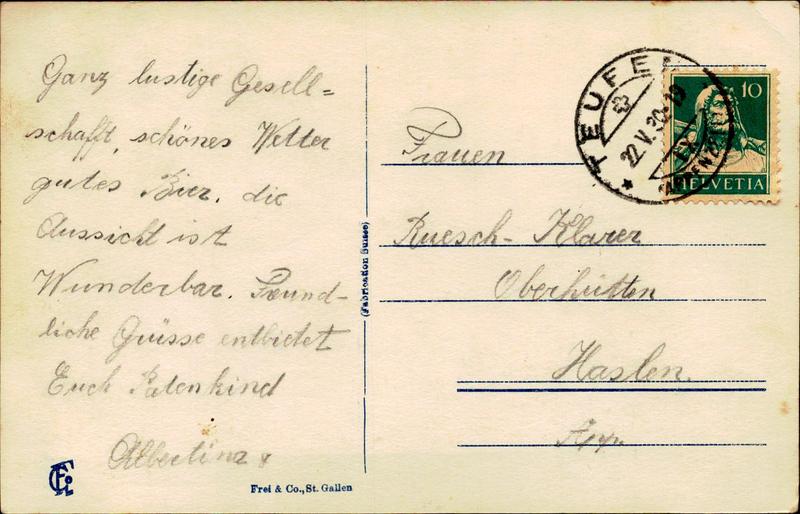 Ganz lustige Gesell=
schafft, schönes Wetter
gutes Bier, die
Aussicht ist
Wunderbar. Freund-
liche Grüsse entbietet
Euch Patenkind
Albertina
Frei & Co., St. Gallen
(Fabrication Suisse)
TEUFEN
22.V.30-19
10
HELVETIA
Frauen
Ruesch-Klarer
Oberhütten
Haslen
App.